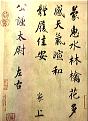 蒙惠水林檎花多
感天氣暄和
體履佳安 襄上
公謹太尉左右